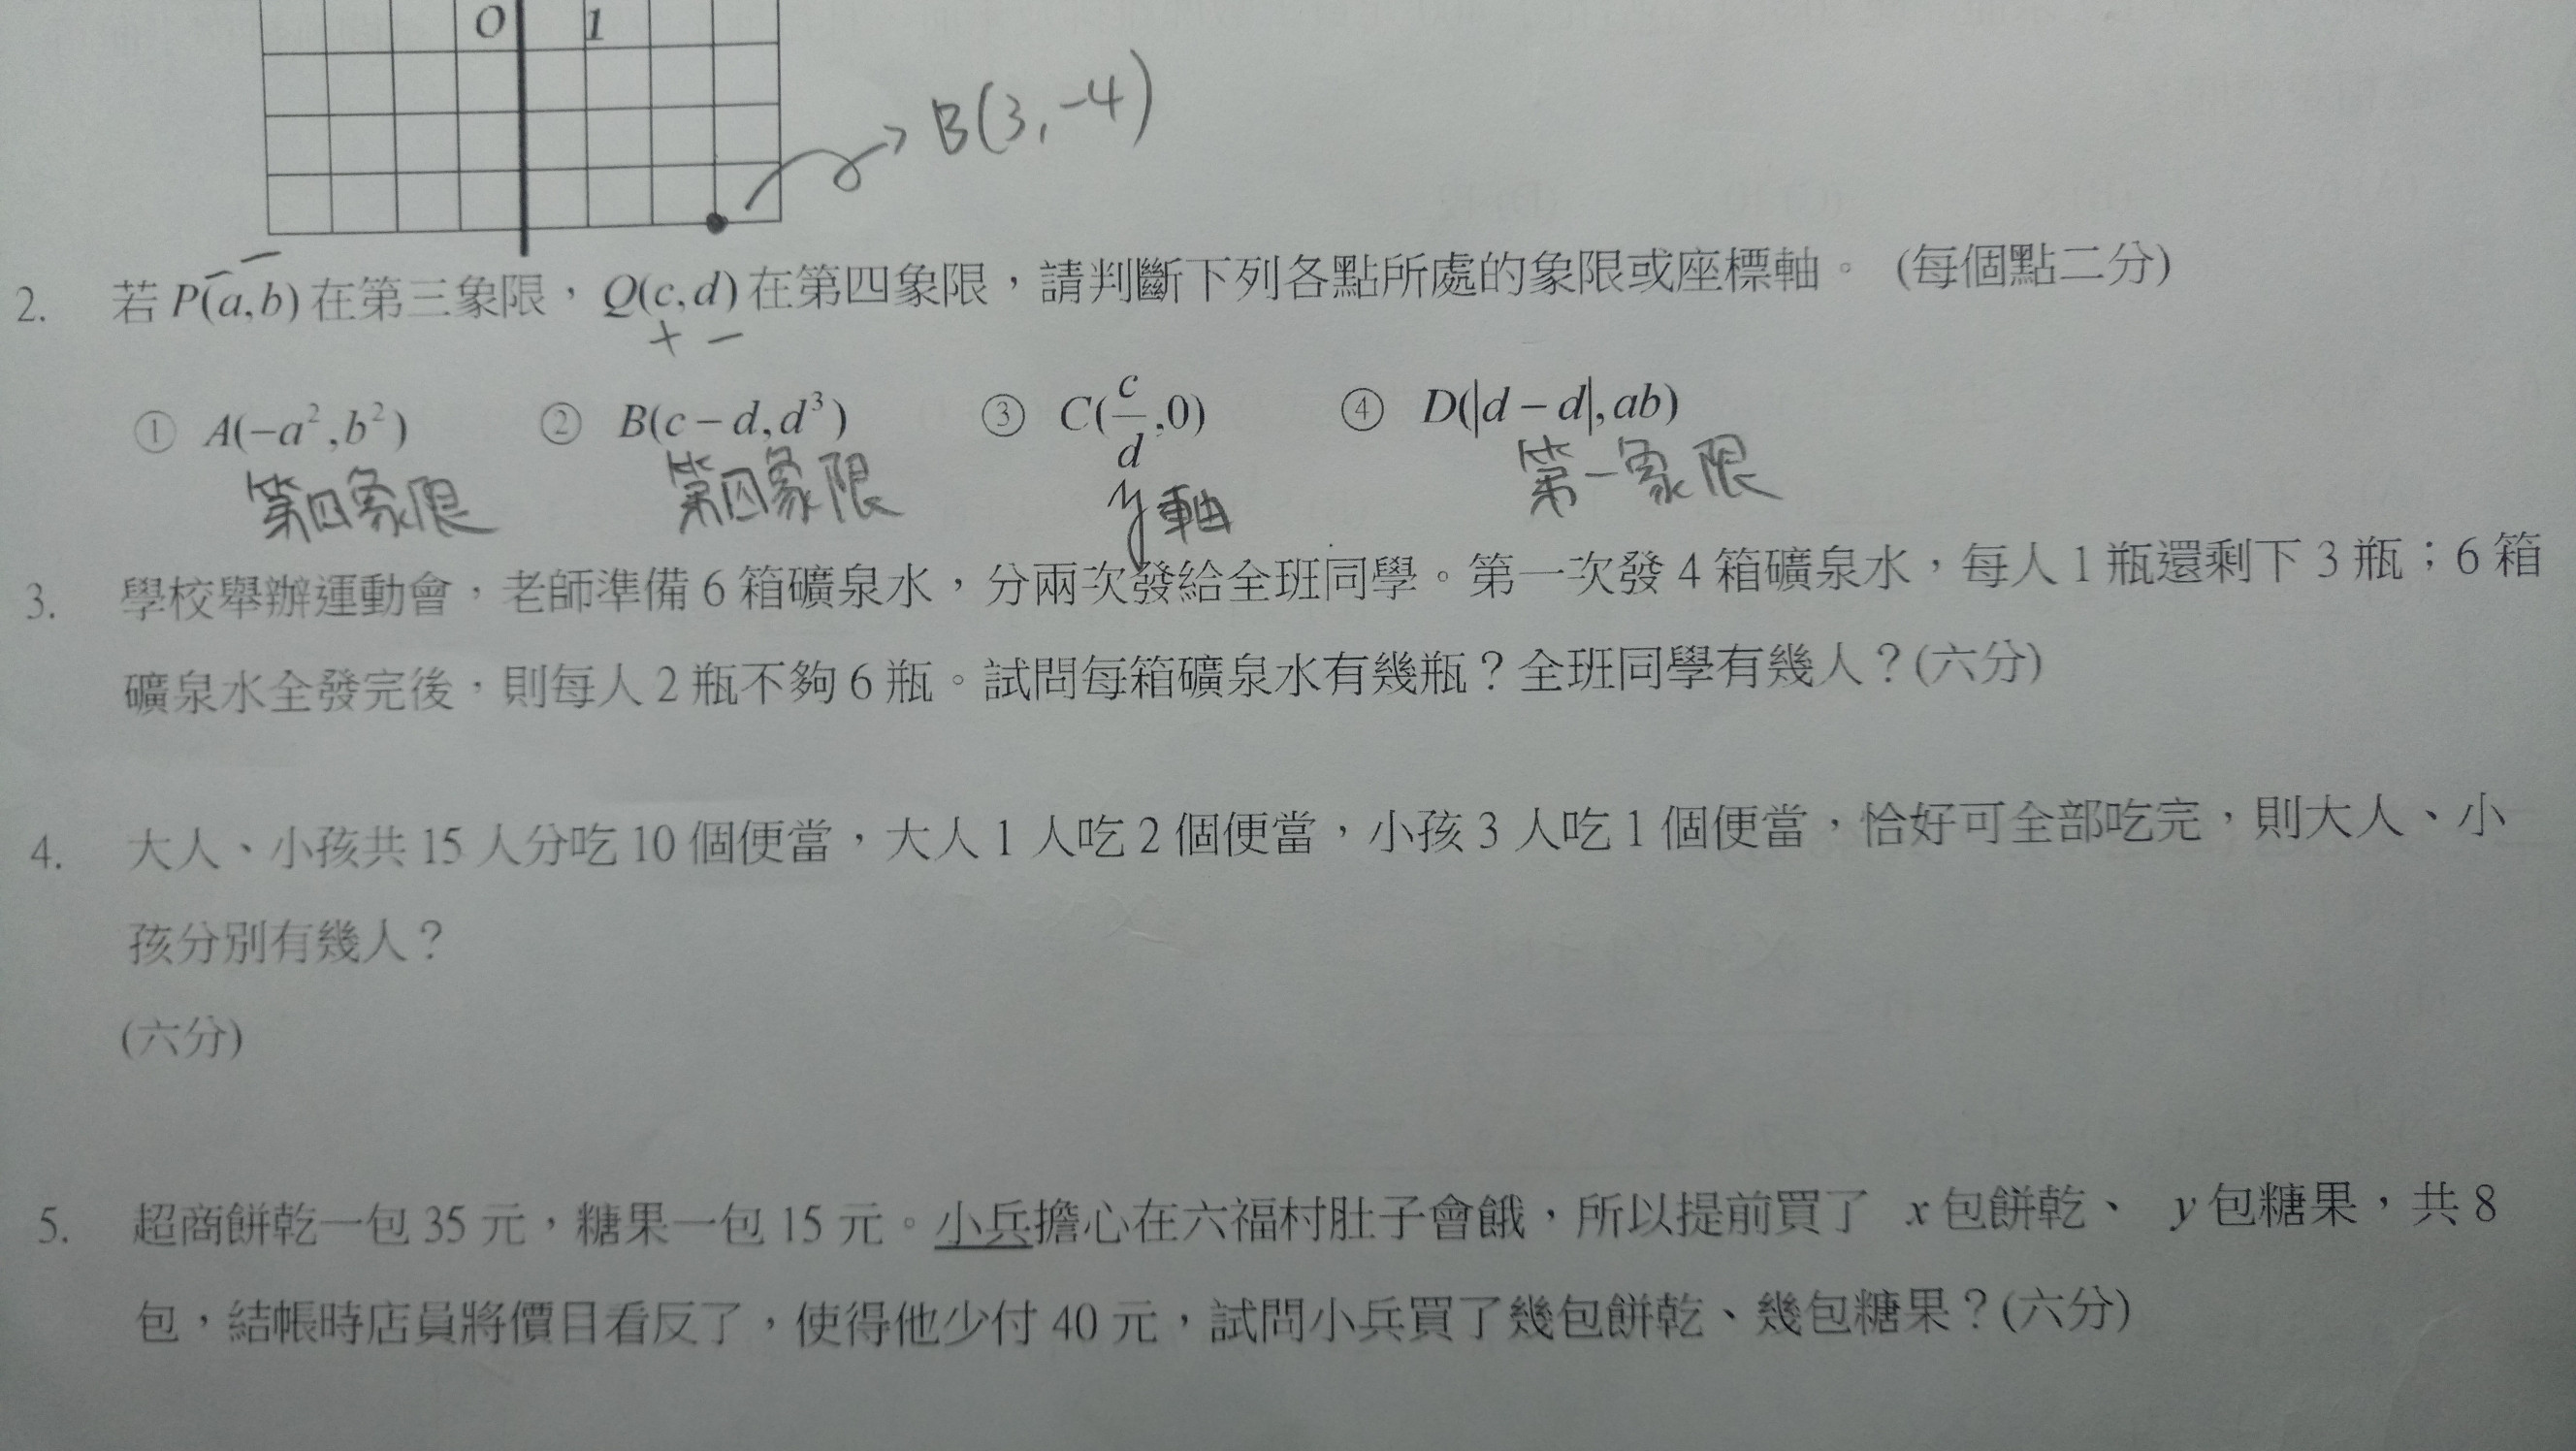 0 1
B(3,-4)
2. 若 P(a,b) 在第三象限，Q(c,d) 在第四象限，請判斷下列各點所處的象限或座標軸。 (每個點二分)
− −
+ −
① A(−a²,b²) ② B(c−d,d³) ③ C(c/d,0) ④ D(|d−d|,ab)
第四象限 第四象限 y軸 第一象限
3. 學校舉辦運動會，老師準備 6 箱礦泉水，分兩次發給全班同學。第一次發 4 箱礦泉水，每人 1 瓶還剩下 3 瓶；6 箱
礦泉水全發完後，則每人 2 瓶不夠 6 瓶。試問每箱礦泉水有幾瓶？全班同學有幾人？(六分)
4. 大人、小孩共 15 人分吃 10 個便當，大人 1 人吃 2 個便當，小孩 3 人吃 1 個便當，恰好可全部吃完，則大人、小
孩分別有幾人？
(六分)
5. 超商餅乾一包 35 元，糖果一包 15 元。小兵擔心在六福村肚子會餓，所以提前買了 x 包餅乾、 y 包糖果，共 8
包，結帳時店員將價目看反了，使得他少付 40 元，試問小兵買了幾包餅乾、幾包糖果？(六分)